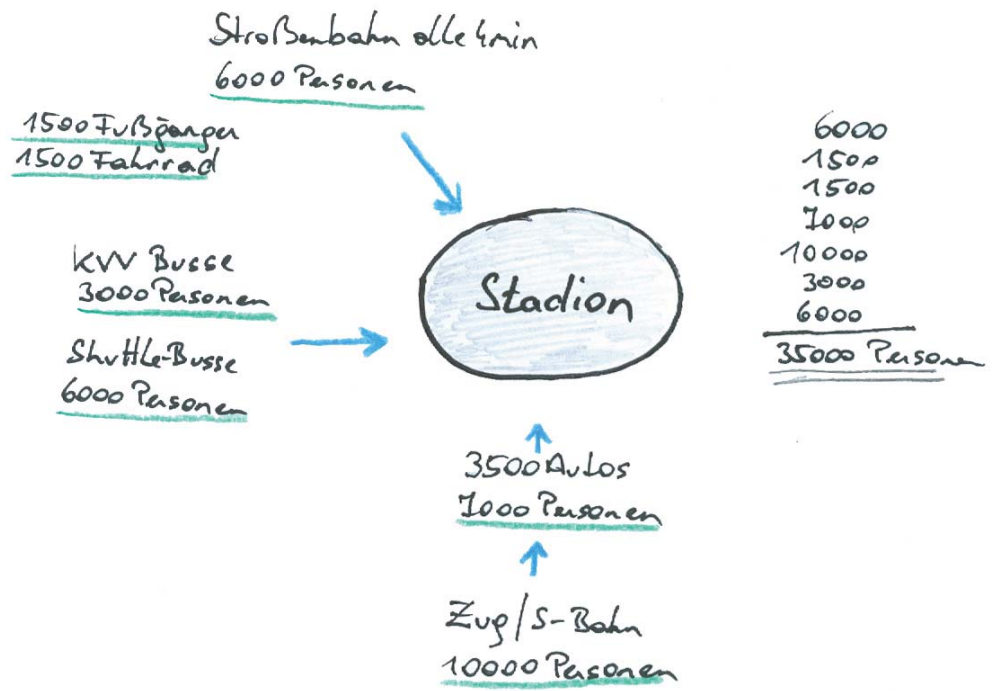 Straßenbahn alle 4min
6000 Personen
1500 Fußgänger
1500 Fahrrad
KVV Busse
3000 Personen
Shuttle-Busse
6000 Personen
Stadion
3500 Autos
7000 Personen
Zug/S-Bahn
10000 Personen
6000
1500
1500
7000
10000
3000
6000
35000 Personen